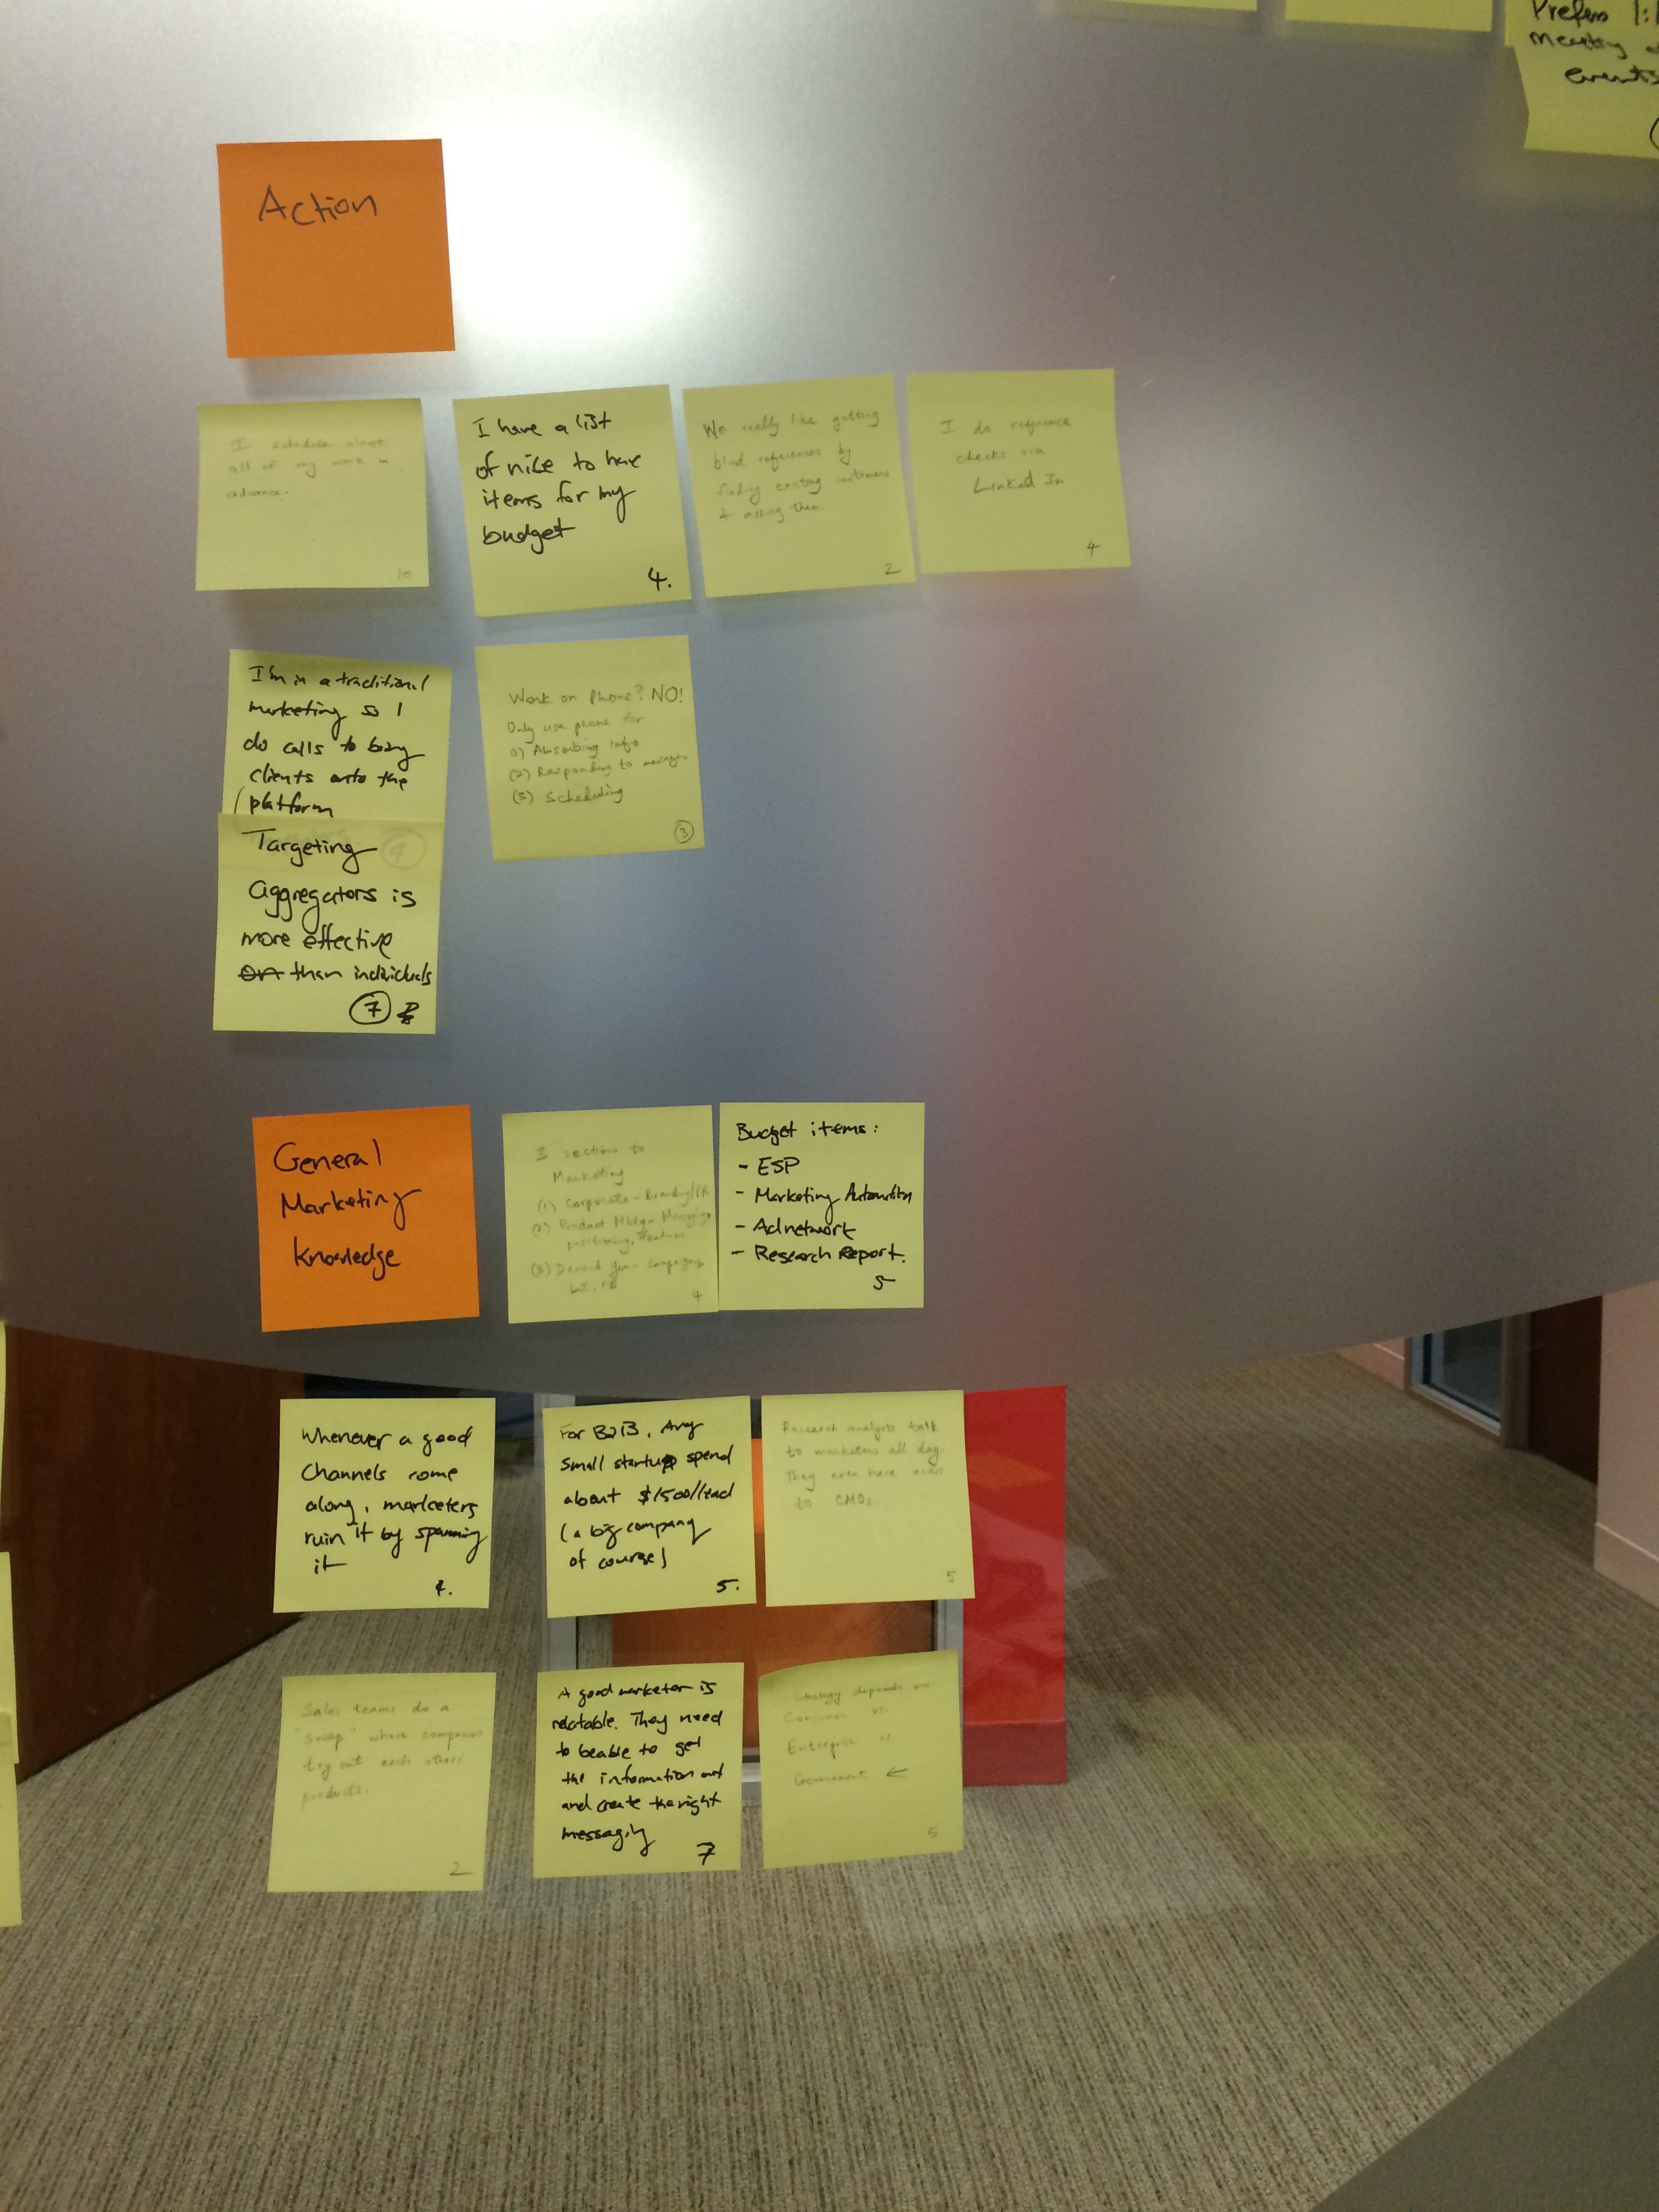 Prefers 1:1
meeting
events
Action
I schedule almost
all of my work in
advance.
10
I have a list
of nice to have
items for my
budget
4.
We really like getting
blind references by
finding existing customers
& asking them.
2
I do reference
checks via
Linked In
4
I'm in a traditional
marketing so I
do calls to bring
clients onto the
platform
Targeting
aggregators is
more effective
than individuals
7
Work on Phone? NO!
Only use phone for
(1) Absorbing info
(2) Responding to messages
(3) Scheduling
3
General
Marketing
Knowledge
3 sections to
Marketing
(1) Corporate - Branding/PR
(2) Product Mktg - Messaging
positioning, features
(3) Demand gen - campaigns
LI, FB
4
Budget items:
- ESP
- Marketing Automation
- Adnetwork
- Research Report.
5
Whenever a good
Channels come
along, marketers
ruin it by spamming
it
4.
For B2B, Avg
small startup spend
about $1500/lead
(a big company
of course)
5.
Research analysts talk
to marketers all day.
They even have access
to CMOs.
5
Sales teams do a
"swap" where companies
try out each others
products.
2
A good marketer is
relatable. They need
to beable to get
the information out
and create the right
messaging
7
Strategy depends on
Consumer vs.
Enterprise vs.
Government ←
5